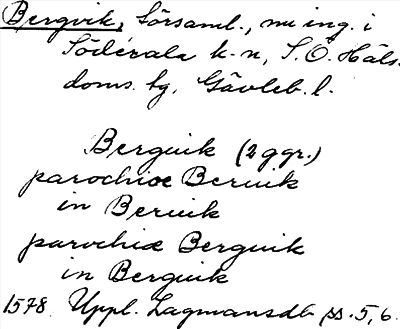 Bergvik, Lörsaml., nu ing. i
Söderala k:n, S. Ö. Häls.
doms. tg, Gävleb. l.
Berguik (2 ggr.)
parochiæ Beruik
in Beruik
parochiæ Berguik
in Berguik
1578 Uppl. Lagmansdb ss. 5, 6.